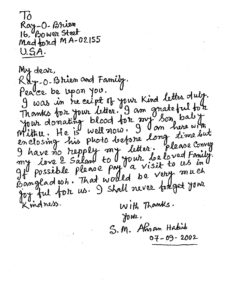 To
Ray-O-Brien
16. Bower Street
Medford MA-02155
U.S.A.
My dear,
Ray-O-Brien and Family.
Peace be upon you.
I was in receipt of your kind letter duly.
Thanks for your letter. I am grateful for
your donating blood for my son, baby
Mithu. He is well now. I am here with
enclosing his photo before long time but
I have no reppily my letter. Please convey
my love & Salam to your beloved Family.
If possible please pay a visit to us in
Bangladesh. That would be very much
joy ful for us. I shall never forget your
kindness.
With Thanks.
Your,
S. M. Ahsan Habib
07-09-2002